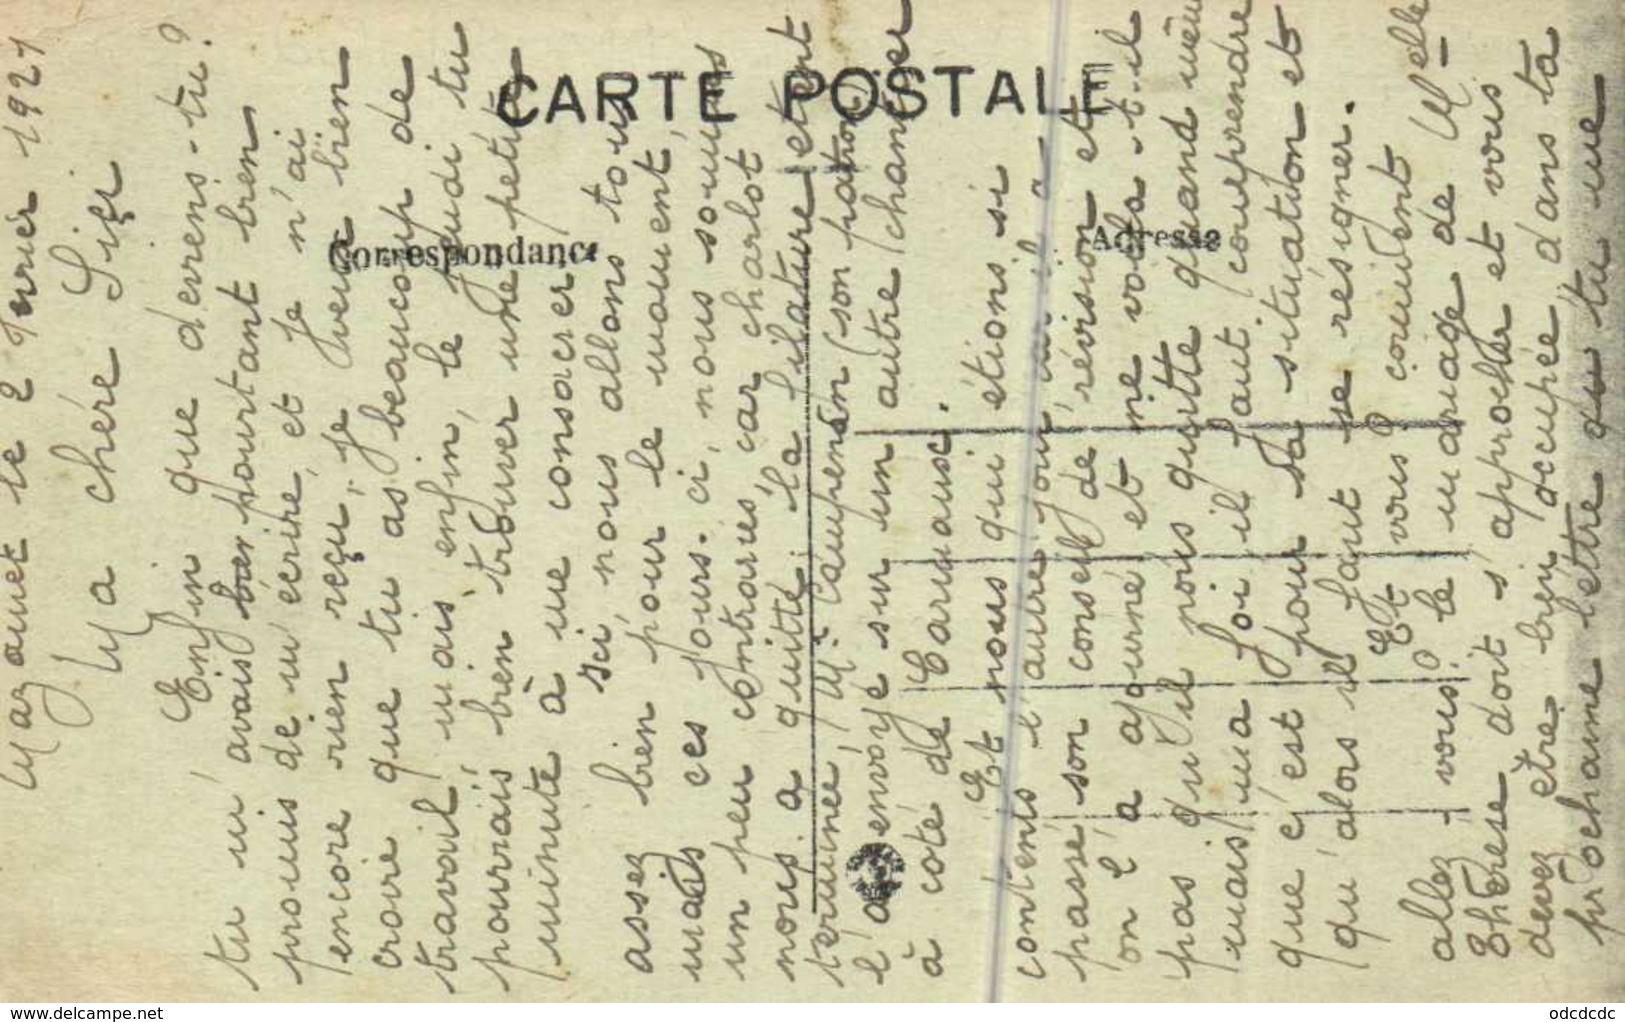 Mazamet le 2 février 1921
Ma chère Lili
Enfin que deviens-tu?
tu m'avais bien pourtant bien
promis de m'écrire, et je n'ai
encore rien reçu, je veux bien
croire que tu as beaucoup de
travail, mais enfin, le jeudi tu
pourrais bien trouver une petite
minute à me consacrer
Ici, nous allons tous
assez bien pour le moment,
mais ces jours-ci, nous sommes
un peu contrariés, car charlot
nous a quitté; la filature étant
terminée, M. Campenan (son patron)
l'a envoyé sur un autre chantier
à coté de Carmaux.
Et nous qui étions si
contents l'autre jour, il a
passé son conseil de révision et
on l'a ajourné et ne voila-t-il
pas qu'il nous quitte quand même
mais, ma foi il faut comprendre
que c'est pour sa situation et
qu'alors il faut se résigner.
Et vous? comment
allez-vous? le mariage de Melle
Thérèse doit s'approcher et vous
devez être bien occupée dans ta
prochaine lettre
CARTE POSTALE
Correspondance
Adresse
delcampe.net
odcdcdc